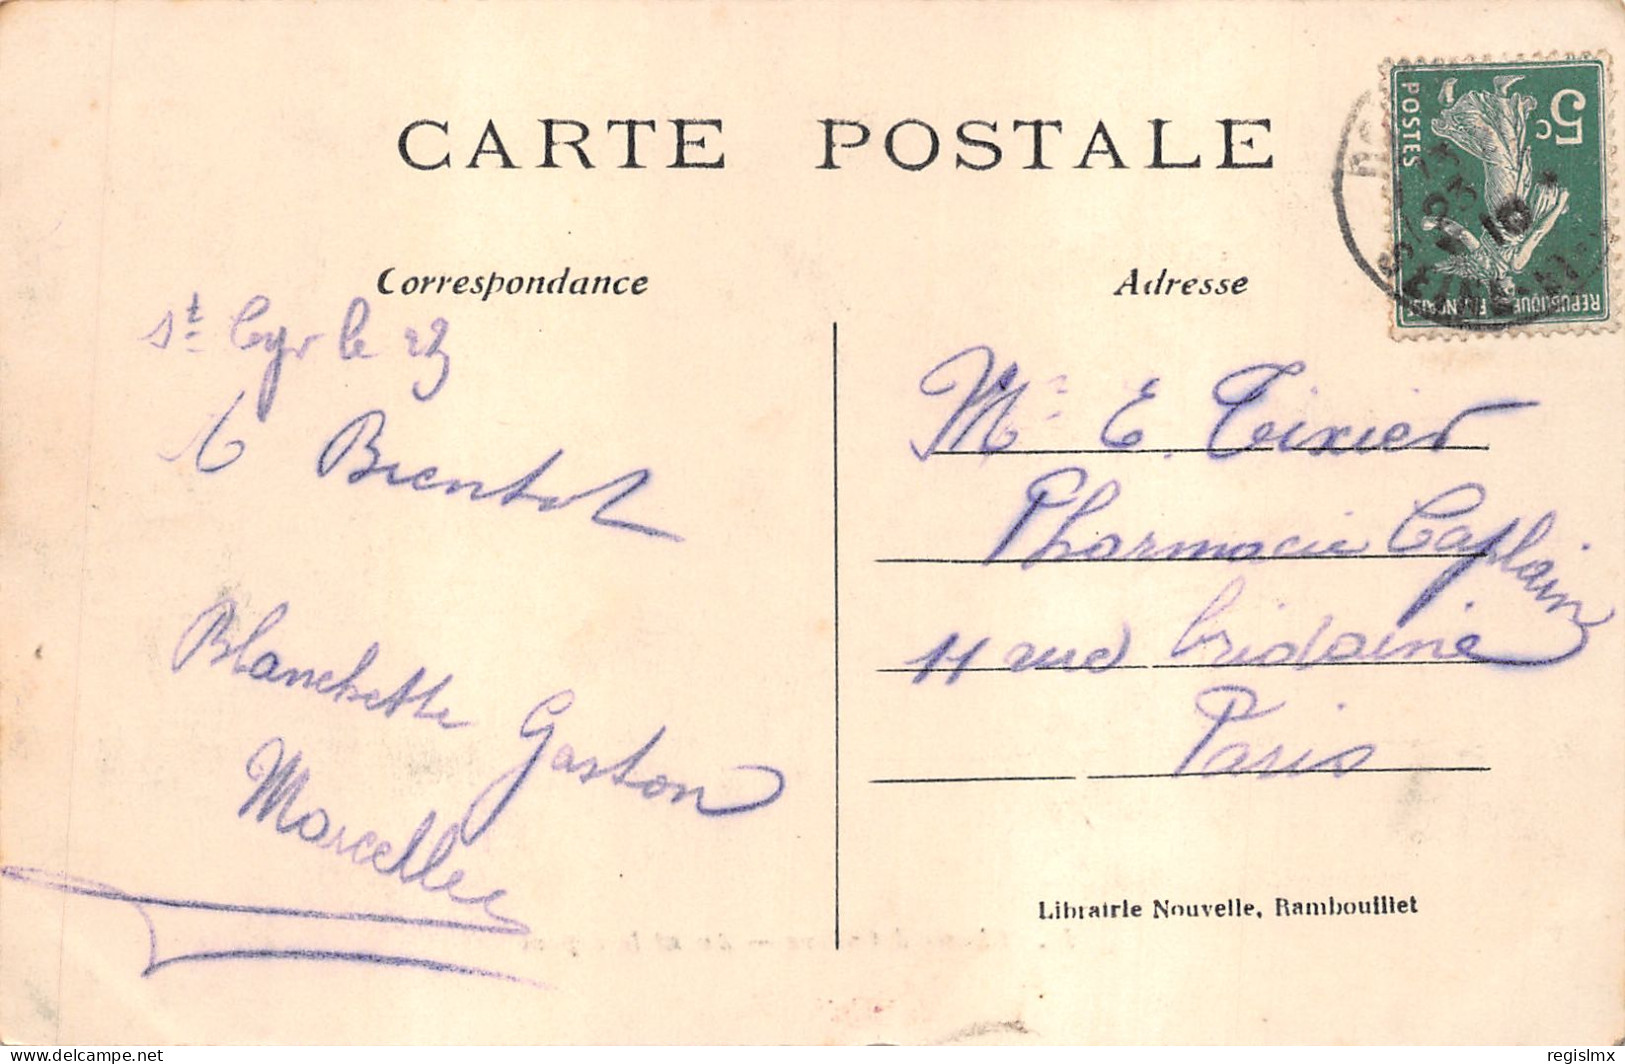 CARTE POSTALE
Correspondance
Adresse
5c
POSTES
REPUBLIQUE FRANÇAISE
10
St Cyr le 23
A Bientot
Blanchette Gaston
Marcelle
Mr E. Tixier
Pharmacie Caplain
11 rue Bridaine
Paris
Librairie Nouvelle, Rambouillet
https://www.delcampe.net
regislmx